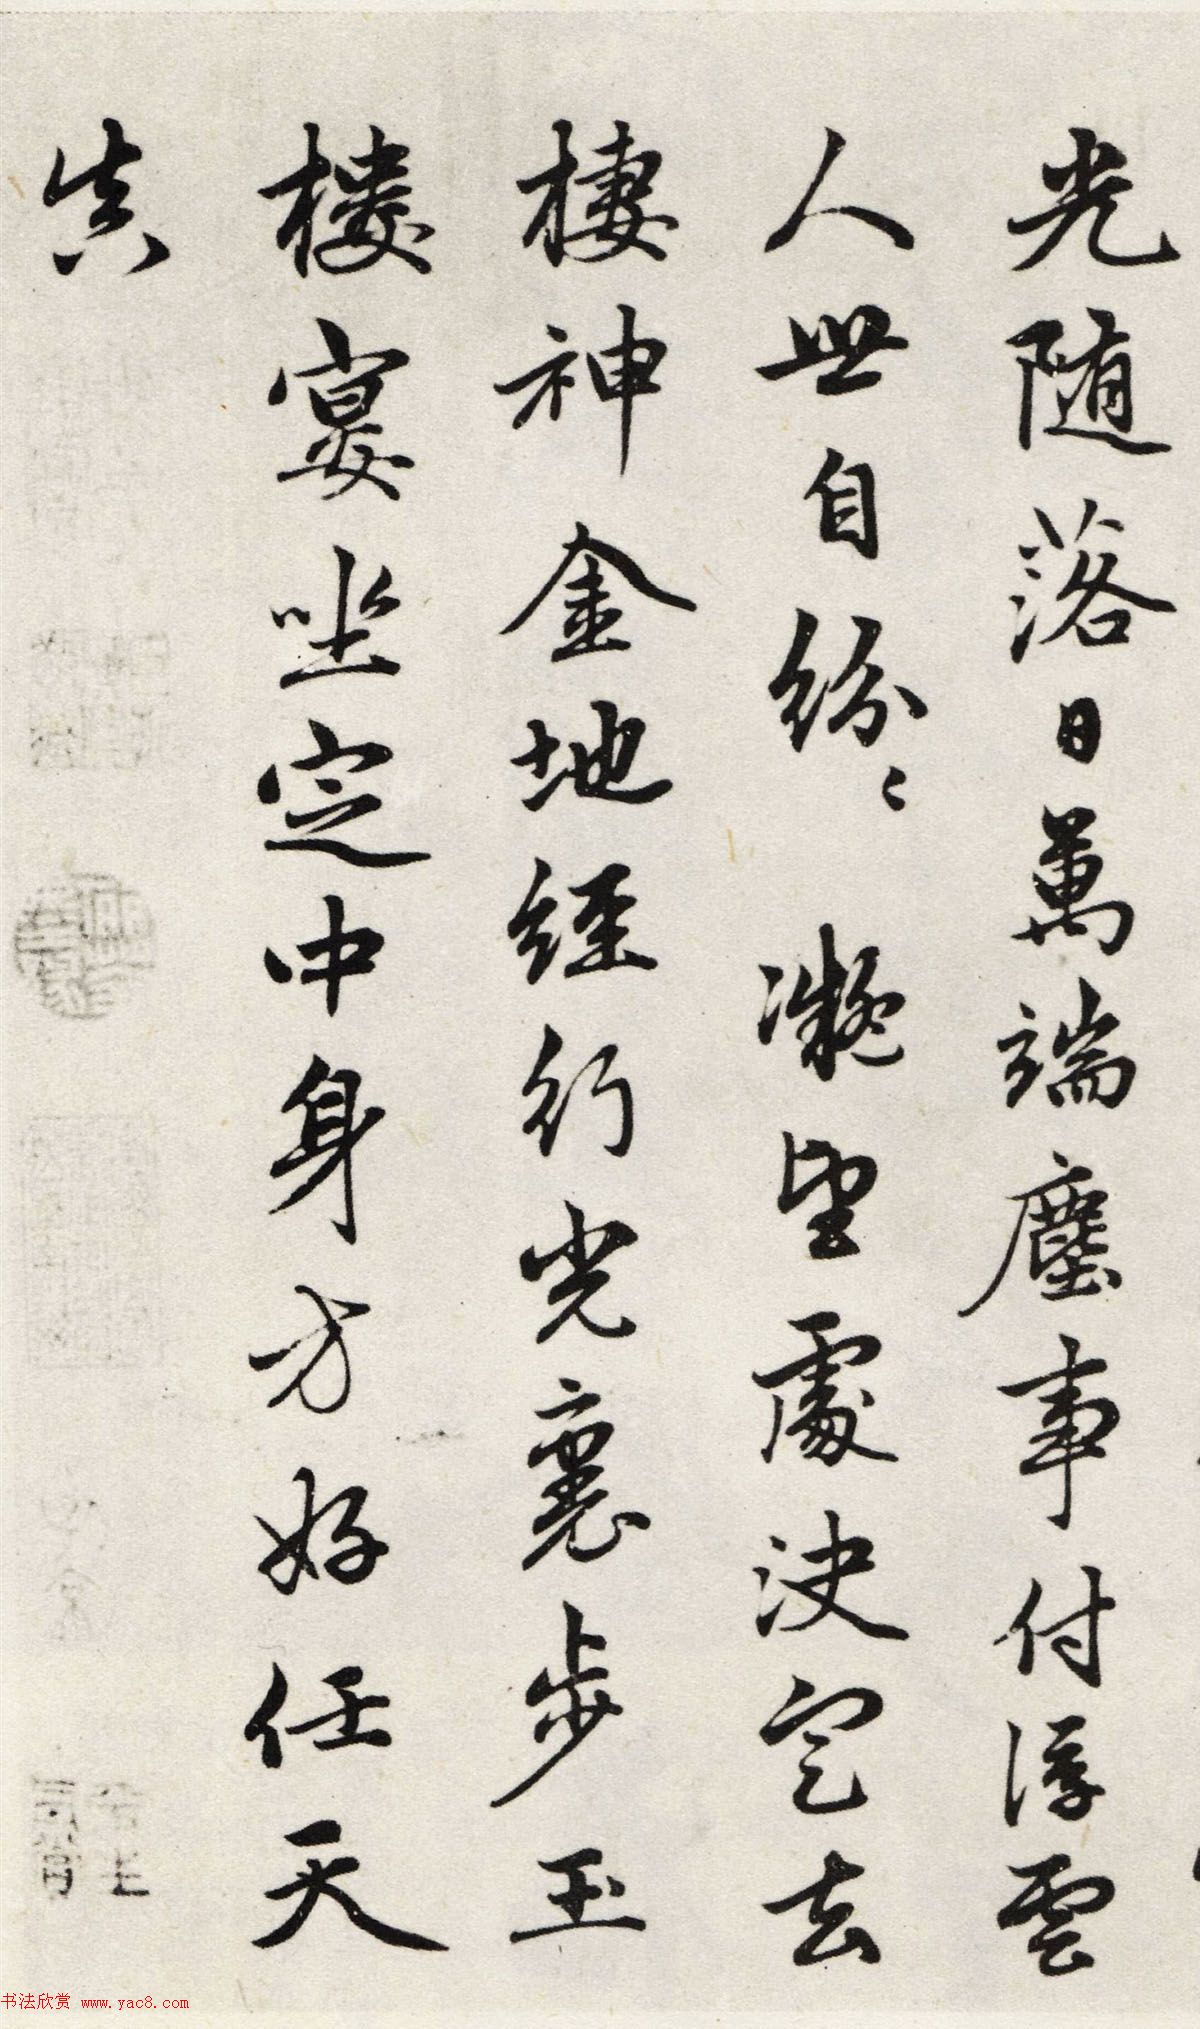 光随落日萬端塵事付浮雲
人世自紛〻凝望處決定去
棲神金地經行光裏步玉
樓宴坐定中身方好任天
真
书法欣赏 www.yac8.com